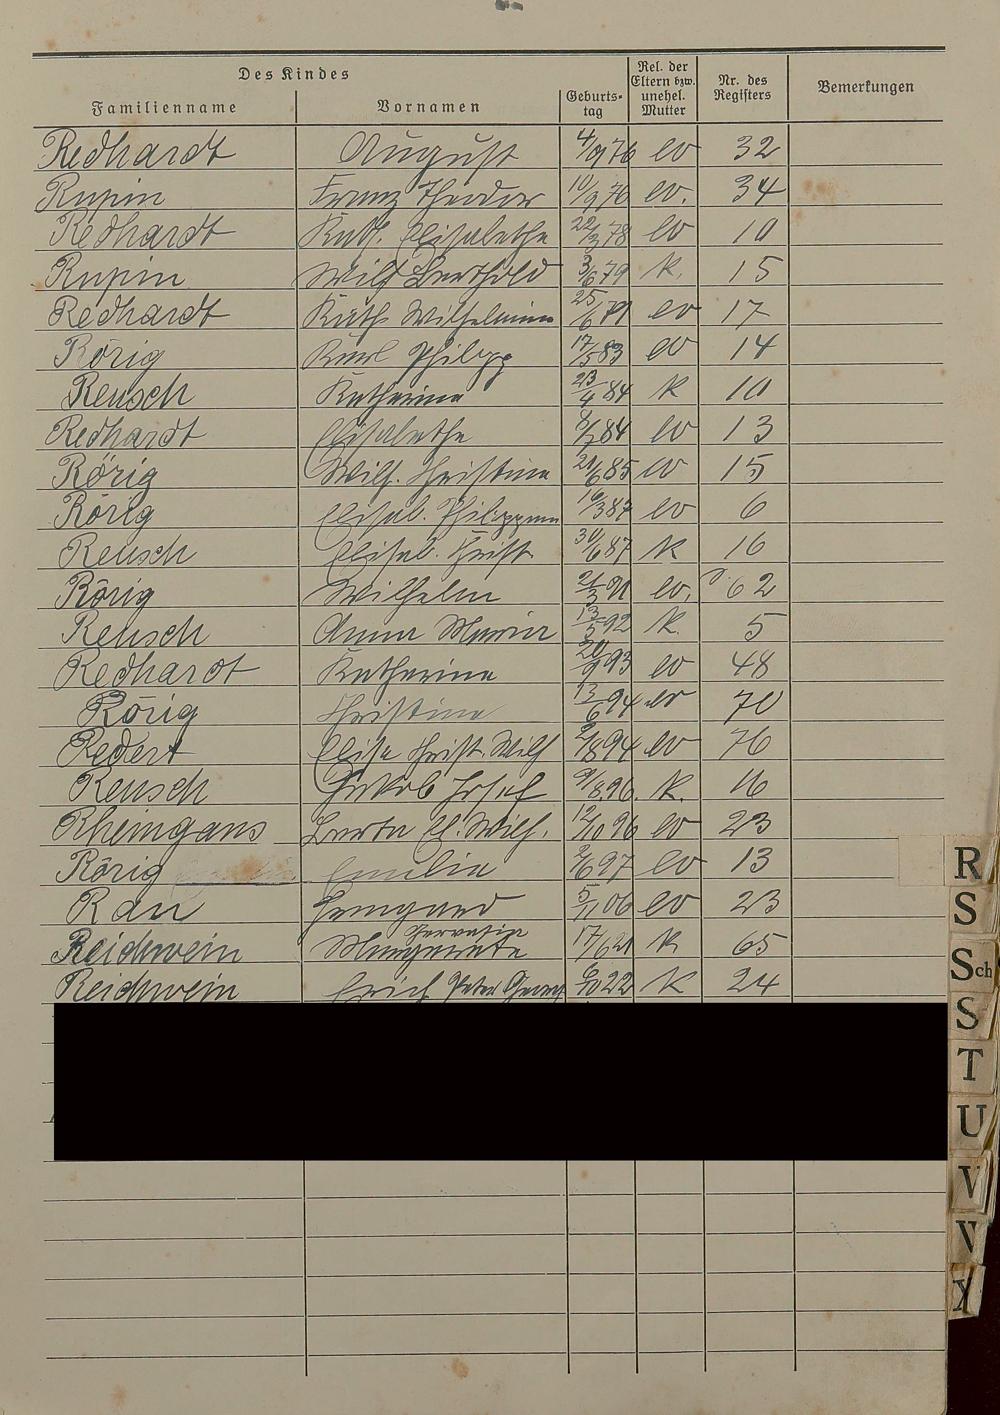 Des Kindes
Familienname Vornamen Geburts-tag Rel. der Eltern bzw. unehel. Mutter Nr. des Registers Bemerkungen
Redhardt August 4/9 76 ev 32
Rupin Franz Theodor 10/9 76 ev. 34
Redhardt Kath. Elisabethe 78 ev 10
Rupin Wilh Berthold 3/6 79 K. 15
Redhardt Kath Wilhelmine 25/6 ev 17
Rörig Karl Philipp 17/5 83 ev 14
Reusch Katharina 23/4 84 K 10
Redhardt Elisabethe 84 ev 13
Rörig Wilh. Christina 85 ev 15
Rörig Elisab. 16/3 87 ev 6
Reusch Elisab. Christ 30/6 87 K 16
Rörig Wilhelm 91 ev. 62
Reusch Anna Maria 13/ 92 K. 5
Redhardt Katharina 93 ev 48
Rörig Christina 13/6 94 ev 70
Redert Elise Christ. Wilh 2/8 94 ev 76
Reusch Jakob Josef 9/8 96. K. 16
Rheingans Berta El. Wilh. 12/10 96 ev 23
Rörig Emilie 97 ev 13
Rau Irmgard 5/11 06 ev 23
Reichwein Margareta 17/6 21 K 65
Reichwein Erich Peter Georg 22 K 24
R
S
Sch
S
T
U
V
X